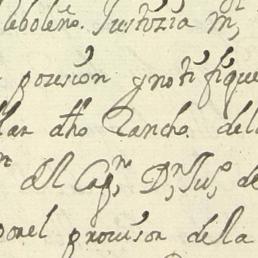 leboleño. Justozia m,
posesion y notifique
llar dho Rancho. dela
del Capn, Dn, Jua, de
por el provisor de la